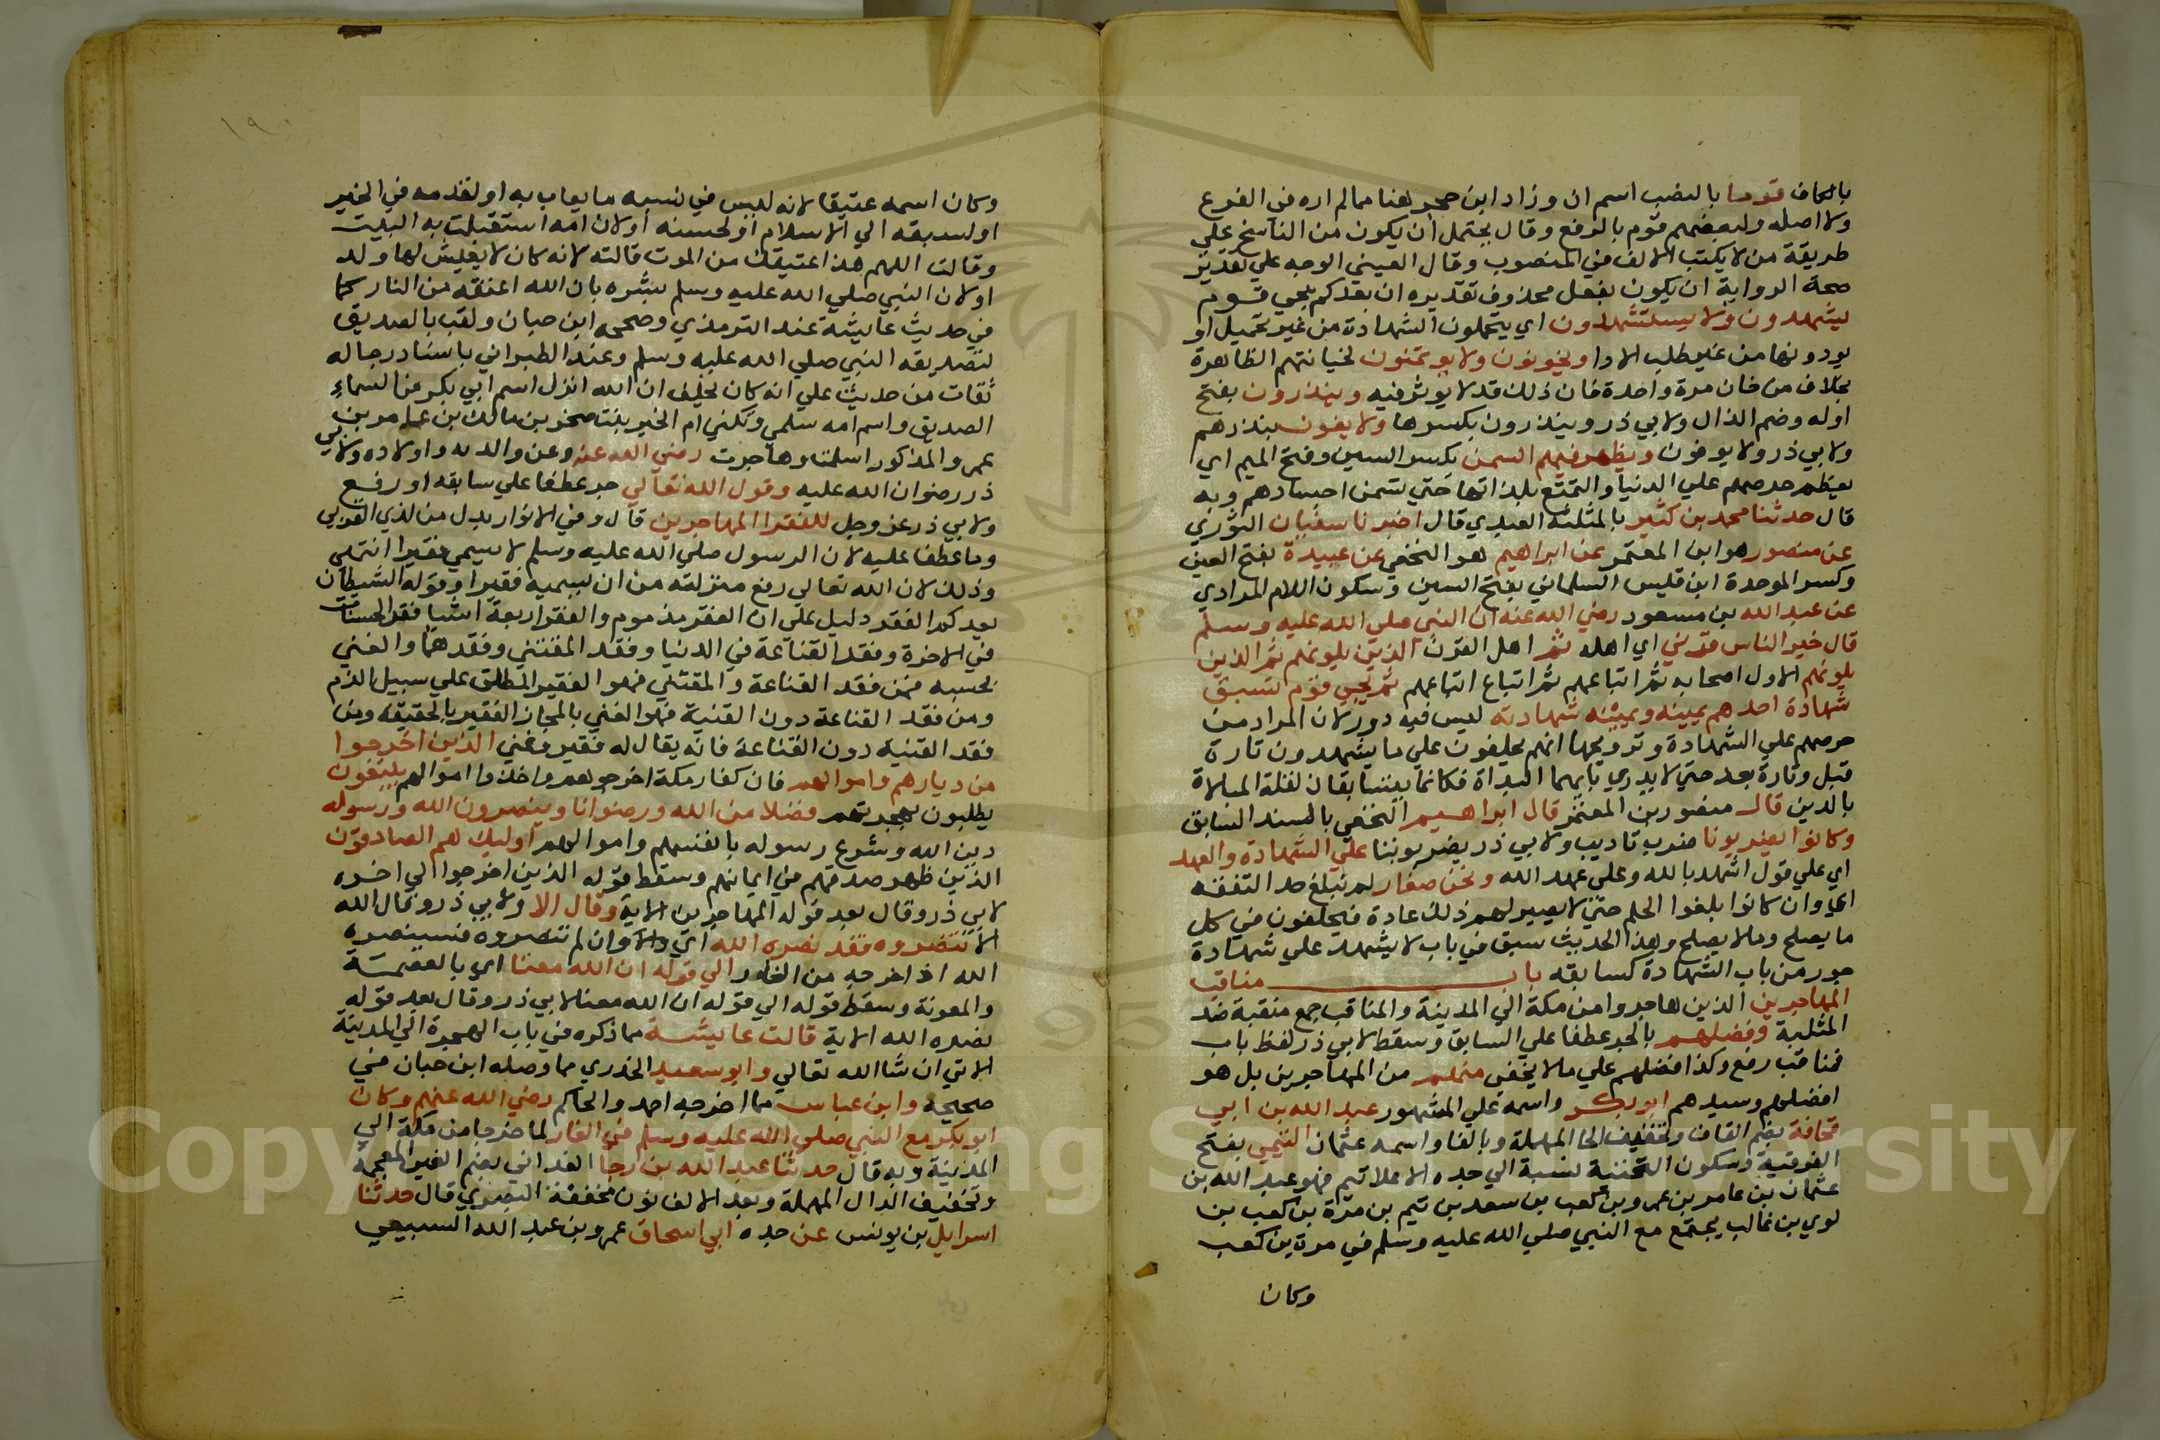 بالكاف قوما بالنصب اسم ان وزاد ابن حجر هنا مما لم اره في الفرع
ولا اصله ولبعضهم قوم بالرفع وقال يحتمل ان يكون من الناسخ علي
طريقة من لا يكتب الالف في المنصوب وقال العيني الوجه علي تقدير
صحة الرواية ان يكون بفعل محذوف تقديره ان بعدكم يجي قوم
يشهدون ولا يستشهدون اي يتحملون الشهادة من غير تحميل او
يودونها من غير طلب الادا ويخونون ولا يوتمنون لخيانتهم الظاهرة
بخلاف من خان مرة واحدة فان ذلك قد لا يوثر فيه وينذرون بفتح
اوله وضم الذال ولابي ذر وينذرون بكسرها ولا يفون بنذرهم
ولابي ذر ولا يوفون ويظهر فيهم السمن بكسر السين وفتح الميم اي
يعظم حرصهم علي الدنيا والتمتع بلذاتها حتي تسمن اجسادهم وبه
قال حدثنا محمد بن كثير بالمثلثة العبدي قال اخبرنا سفيان الثوري
عن منصور هو ابن المعتمر عن ابراهيم هو النخعي عن عبيدة بفتح العين
وكسر الموحدة ابن قيس السلماني بفتح السين وسكون اللام المرادي
عن عبد الله بن مسعود رضي الله عنه ان النبي صلي الله عليه وسلم
قال خير الناس قرني اي اهله ثم اهل القرن الذين يلونهم ثم الذين
يلونهم الاول اصحابه ثم اتباعهم ثم اتباع اتباعهم ثم يجي قوم تسبق
شهادة احدهم يمينه ويمينه شهادته ليس فيه دور لان المراد من
حرصهم علي الشهادة وترويجها انهم يحلفون علي ما يشهدون تارة
قبل وتارة بعد حتي لا يدري بايهما البداة فكانما يتسابقان لقلة المبالاة
بالدين قال منصور بن المعتمر قال ابراهيم النخعي بالسند السابق
وكانوا يضربونا ضرب تاديب ولابي ذر يضربوننا علي الشهادة والعهد
اي علي قول اشهد بالله وعلي عهد الله ونحن صغار لم نبلغ حد التفقه
اي وان كانوا بلغوا الحلم حتي لا يصير لهم ذلك عادة فيحلفون في كل
ما يصلح وما لا يصلح وهذا الحديث سبق في باب لا يشهد علي شهادة
جور من باب الشهادة كسابقه باب مناقب
المهاجرين الذين هاجروا من مكة الي المدينة والمناقب جمع منقبة ضد
المثلبة وفضلهم بالجر عطفا علي السابق وسقط لابي ذر لفظ باب
فمناقب رفع وكذا فضلهم علي ما لا يخفي منهم من المهاجرين بل هو
افضلهم وسيدهم ابو بكر واسمه علي المشهور عبد الله بن ابي
قحافة بضم القاف وتخفيف الحا المهملة وبالفا واسمه عثمان التيمي بفتح
الفوقية وسكون التحتية نسبة الي جده الاعلا تيم فهو عبد الله بن
عثمان بن عامر بن عمرو بن كعب بن سعد بن تيم بن مرة بن كعب بن
لوي بن غالب يجتمع مع النبي صلي الله عليه وسلم في مرة بن كعب
وكان
١٩٠
وكان اسمه عتيقا لانه ليس في نسبه ما يعاب به او لقدمه في الخير
او لسبقه الي الاسلام او لحسنه او لان امه استقبلت به البيت
وقالت اللهم هذا عتيقك من الموت قالته لانه كان لا يعيش لها ولد
او لان النبي صلي الله عليه وسلم بشره بان الله اعتقه من النار كما
في حديث عايشة عند الترمذي وصححه ابن حبان ولقب بالصديق
لتصديقه النبي صلي الله عليه وسلم وعند الطبراني باسناد رجاله
ثقات من حديث علي انه كان يحلف ان الله انزل اسم ابي بكر من السماء
الصديق واسم امه سلمي وتكني ام الخير بنت صخر بن مالك بن عامر بن
عمرو المذكور اسلمت وهاجرت رضي الله عنه وعن والديه واولاده ولابي
ذر رضوان الله عليه وقول الله تعالي جر عطفا علي سابقه او رفع
ولابي ذر عز وجل للفقرا المهاجرين قال وفي الانوار بدل من لذي القربي
وما عطفا عليه لان الرسول صلي الله عليه وسلم لا يسمي فقيرا انتهي
وذلك لان الله تعالي رفع منزلته من ان يسميه فقيرا وقوله الشيطان
يعدكم الفقر دليل علي ان الفقر مذموم والفقر اربعة اشيا فقد الحسنات
في الاخرة وفقد القناعة في الدنيا وفقد المقتني وفقدهما والغني
بحسبه فمن فقد القناعة والمقتني فهو الفقير المطلق علي سبيل الذم
ومن فقد القناعة دون القنية فهو الغني بالمجاز الفقير بالحقيقة ومن
فقد القنية دون القناعة فانه يقال له فقير وغني الذين اخرجوا
من ديارهم واموالهم فان كفار مكة اخرجوهم واخذوا اموالهم يبتغون
يطلبون بهجرتهم فضلا من الله ورضوانا وينصرون الله ورسوله
دين الله وشرع رسوله بانفسهم واموالهم اوليك هم الصادقون
الذين ظهر صدقهم في ايمانهم وسقط قوله الذين اخرجوا الي اخره
لابي ذر وقال بعد قوله المهاجرين الاية وقال الا ولابي ذر وقال الله
الا تنصروه فقد نصره الله اي والا وان لم تنصروه فسينصره
الله اذ اخرجه من الغار الي قوله ان الله معنا اي بالعصمة
والمعونة وسقط قوله الي قوله ان الله معنا لابي ذر وقال بعد قوله
نصره الله الاية قالت عايشة مما ذكره في باب الهجرة الي المدينة
الاتي ان شا الله تعالي وابو سعيد الخدري مما وصله ابن حبان في
صحيحه وابن عباس مما اخرجه احمد والحاكم رضي الله عنهم وكان
ابو بكر مع النبي صلي الله عليه وسلم في الغار لما خرجا من مكة الي
المدينة وبه قال حدثنا عبد الله بن رجا الغداني بضم الغين المعجمة
وتخفيف الدال المهملة وبعد الالف نون مخففة البصري قال حدثنا
اسرايل بن يونس عن جده ابي اسحاق عمرو بن عبد الله السبيعي